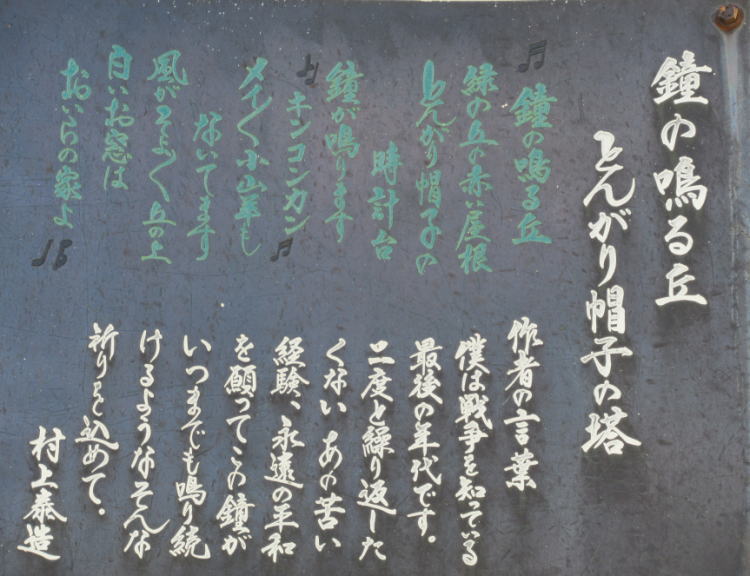 鐘の鳴る丘
とんがり帽子の塔
鐘の鳴る丘
緑の丘の赤い屋根
とんがり帽子の
時計台
鐘が鳴ります
キンコンカン
メイ〱小山羊も
ないてます
風がそよ〱丘の上
白いお窓は
おいらの家よ
作者の言葉
僕は戦争を知っている
最後の年代です。
二度と繰り返した
くないあの苦い
経験、永遠の平和
を願ってこの鐘が
いつまでも鳴り続
けるようなそんな
祈りを込めて。
村上泰造